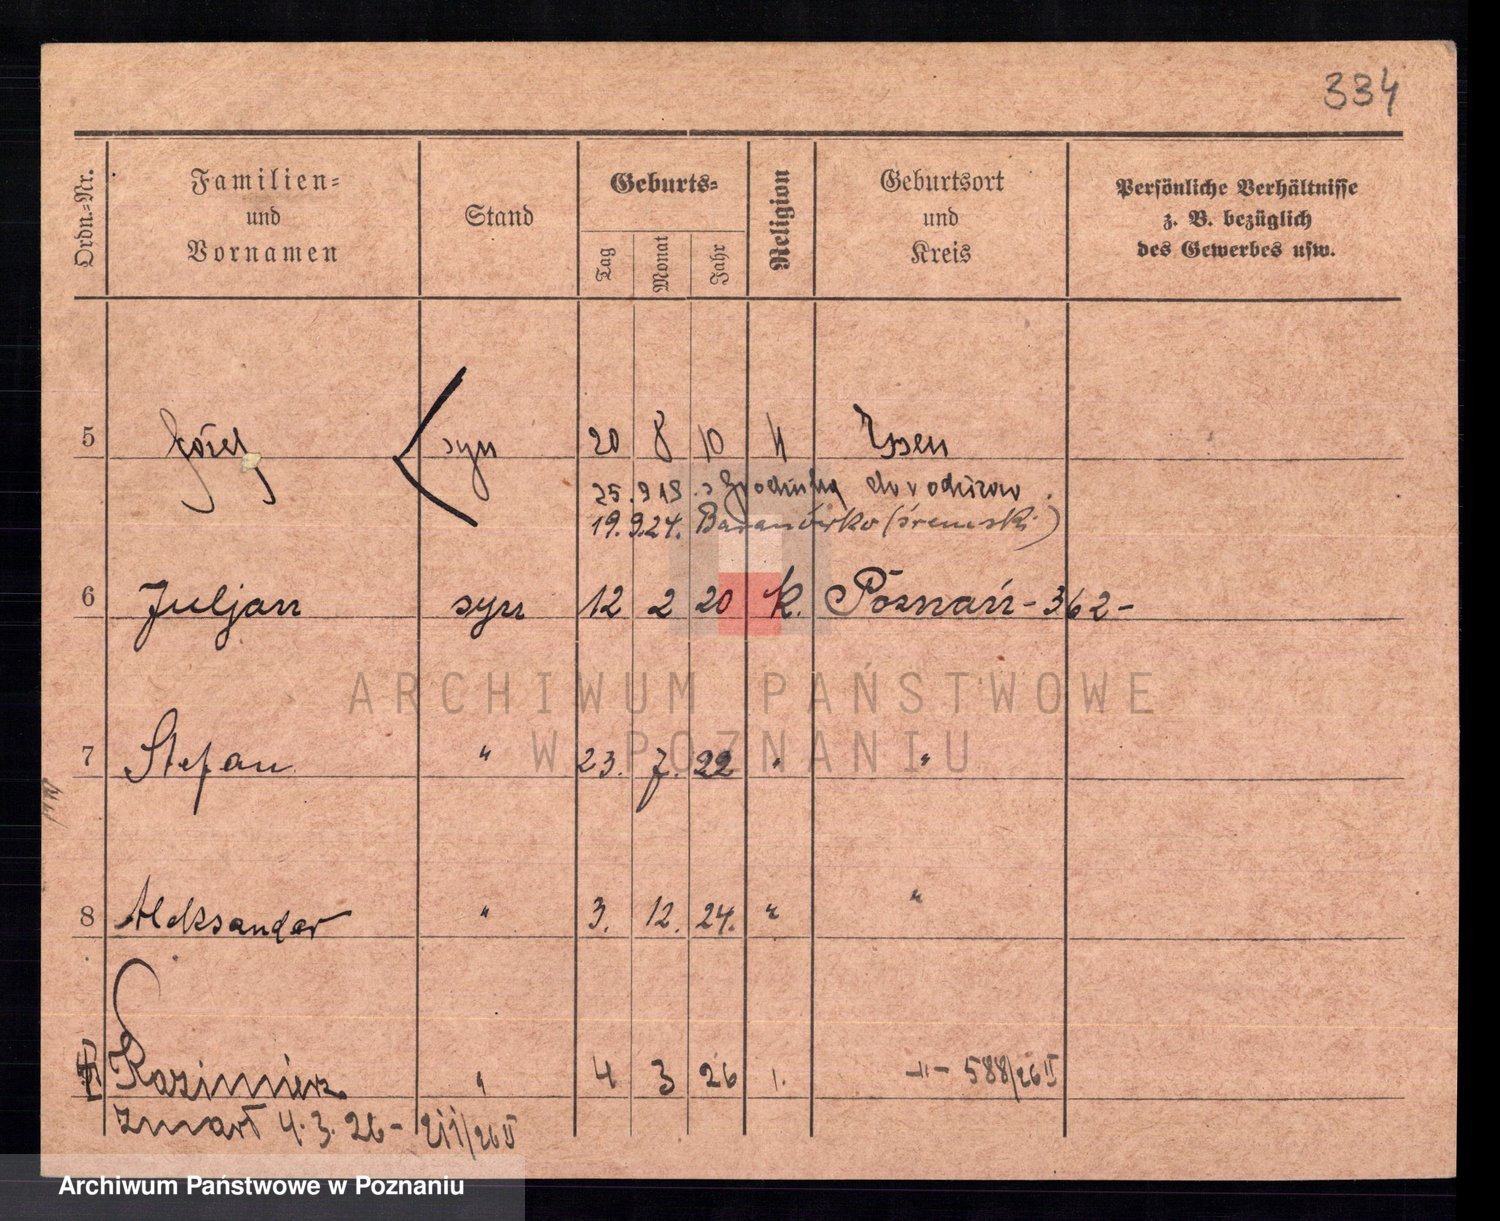 334
Ordn.-Nr.
Familien-
und
Vornamen
Stand
Geburts-
Tag
Monat
Jahr
Religion
Geburtsort
und
Kreis
Persönliche Verhältnisse
z. B. bezüglich
des Gewerbes usw.
5 Józef syn 20 8 10 Essen
25.9.18
19.9.24. Baranówko (śremski)
6 Juljan syn 12 2 20 k. Poznań - 362 -
ARCHIWUM PAŃSTWOWE
W POZNANIU
7 Stefan " 23. 7. 22 " "
8 Aleksander " 3. 12. 24. " "
Kazimierz " 4 3 26 -"- 588/26 II
zmarł 4.3.26 - 211/26 II
Archiwum Państwowe w Poznaniu